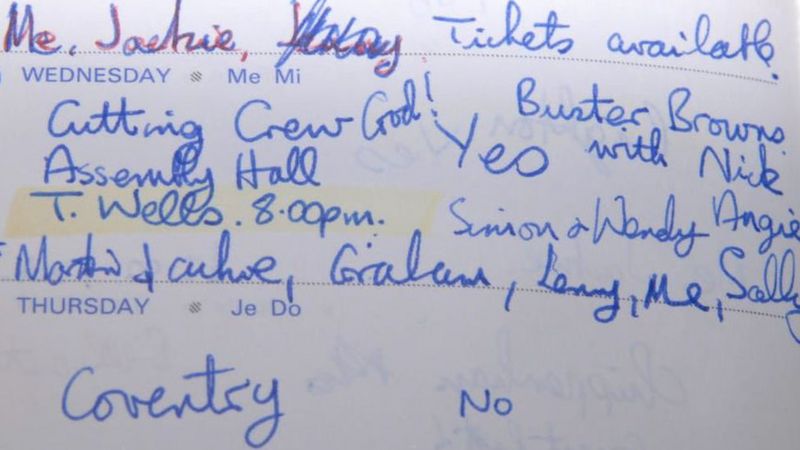 Me. Jackie, Tickets available.
WEDNESDAY Me Mi
Cutting Crew God! Buster Browns
Assembly Hall Yes with Nick
T. Wells. 8.00pm. Simon & Wendy Angie
Martin Jackie, Graham, Lenny, Me, Sally
THURSDAY Je Do
Coventry No